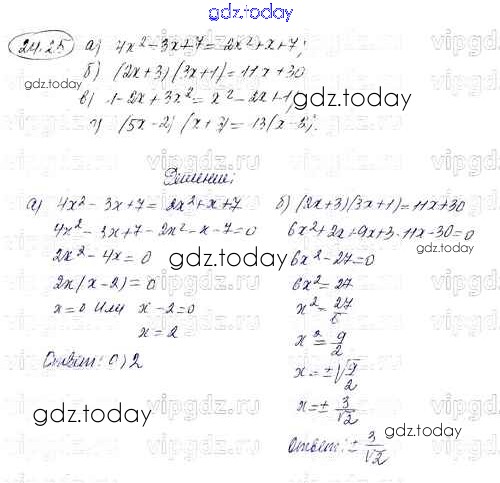 gdz.today
24.25 а) 4x² - 3x + 7 = 2x² + x + 7;
б) (2x+3)(3x+1) = 11x + 30
в) 1 - 2x + 3x² = x² - 2x + 1;
г) (5x - 2)(x + 3) = 13(x - 2).
Решение:
а) 4x² - 3x + 7 = 2x² + x + 7
4x² - 3x + 7 - 2x² - x - 7 = 0
2x² - 4x = 0
2x(x - 2) = 0
x = 0 или x - 2 = 0
x = 2
Ответ: 0; 2
б) (2x+3)(3x+1) = 11x + 30
6x² + 2x + 9x + 3 - 11x - 30 = 0
6x² - 27 = 0
6x² = 27
x² = 27/6
x² = 9/2
x = ±√9/2
x = ± 3/√2
Ответ: ± 3/√2
gdz.today
gdz.today
gdz.today
gdz.today
gdz.today
vipgdz.ru